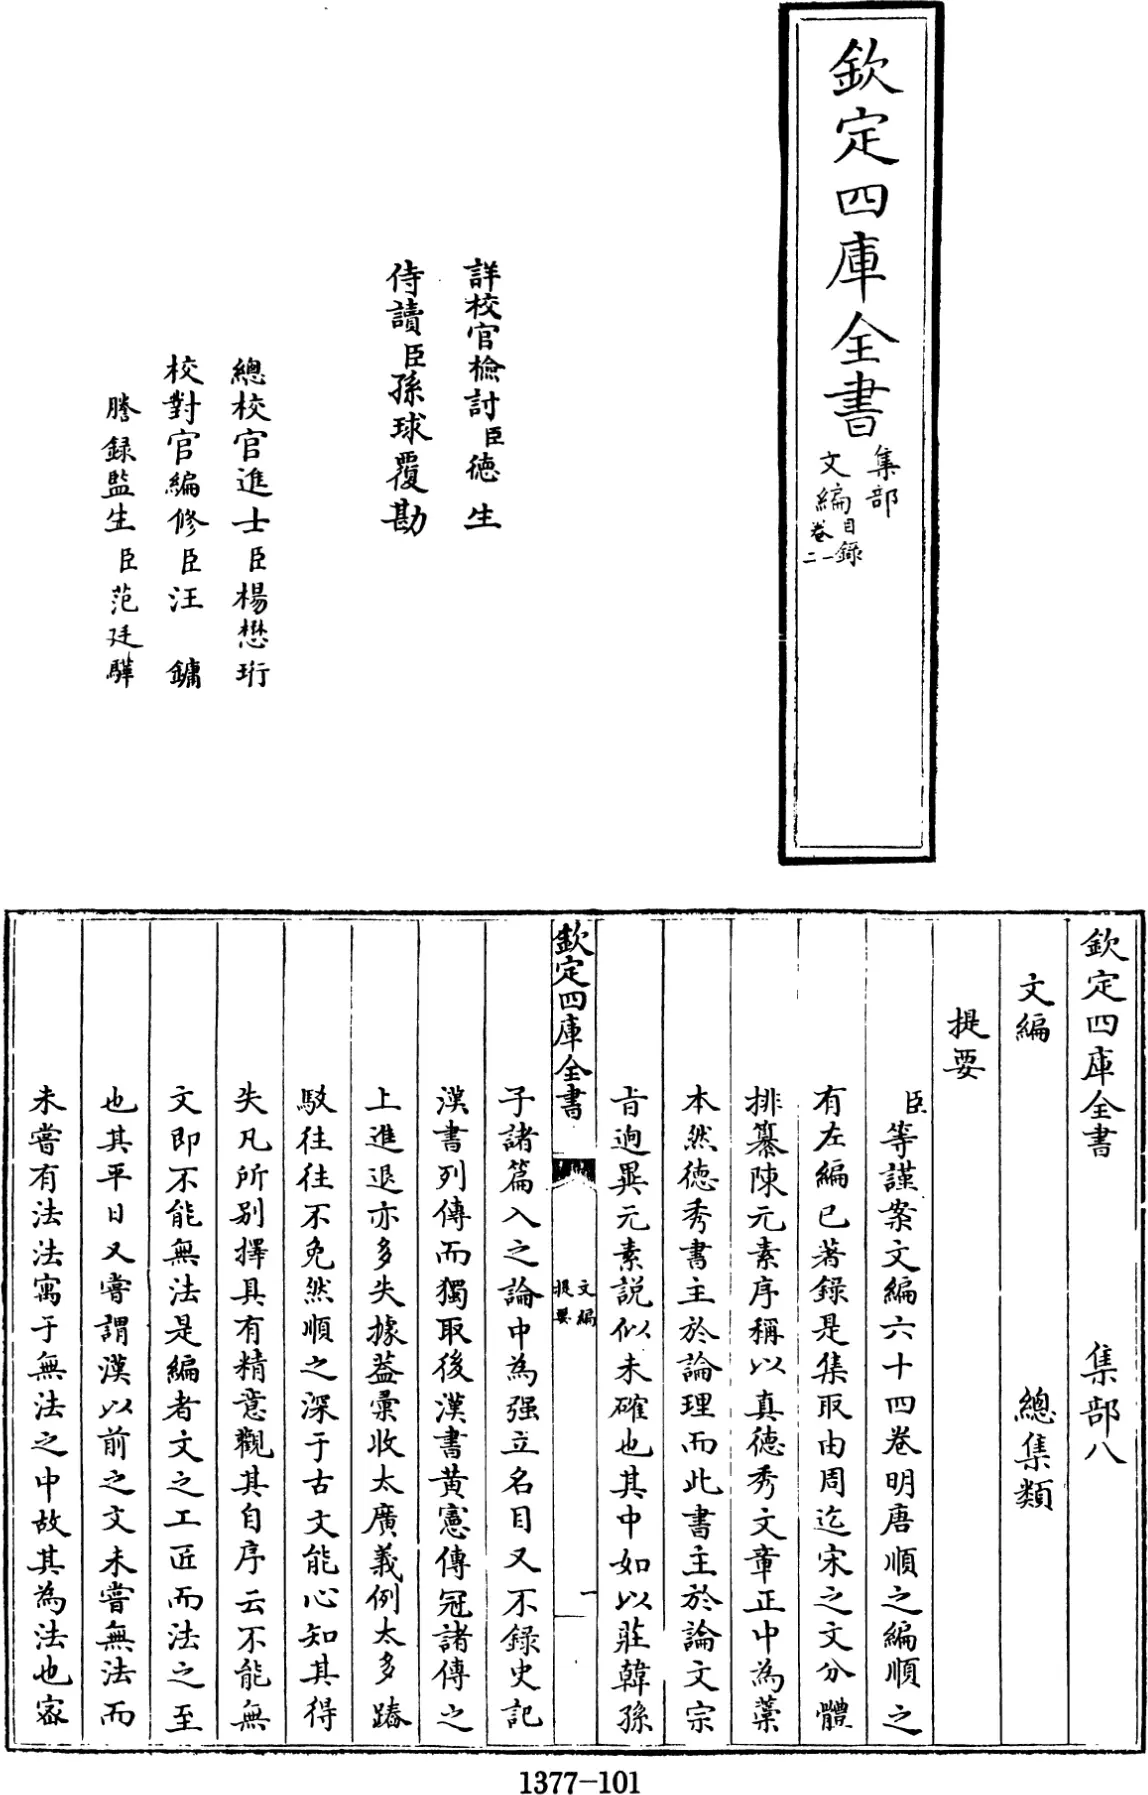 欽定四庫全書
集部
文編目錄
卷一
二
詳校官檢討臣德生
侍讀臣孫球覆勘
總校官進士臣楊懋珩
校對官編修臣汪鏞
謄錄監生臣范廷驊
欽定四庫全書 集部八
文編 總集類
提要
臣等謹案文編六十四卷明唐順之編順之
有左編已著錄是集取由周迄宋之文分體
排纂陳元素序稱以真德秀文章正中為藁
本然德秀書主於論理而此書主於論文宗
旨逈異元素說似未確也其中如以莊韓孫
欽定四庫全書 文編 提要 一
子諸篇入之論中為强立名目又不錄史記
漢書列傳而獨取後漢書黄憲傳冠諸傳之
上進退亦多失據葢彚收太廣義例太多踳
駁往往不免然順之深于古文能心知其得
失凡所别擇具有精意觀其自序云不能無
文即不能無法是編者文之工匠而法之至
也其平日又嘗謂漢以前之文未嘗無法而
未嘗有法法寓于無法之中故其為法也宻
1377-101